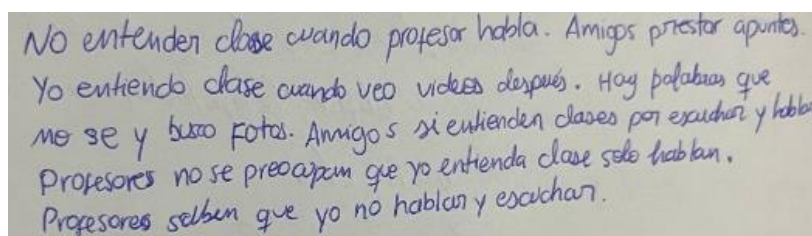 No entender clase cuando profesor habla. Amigos prestar apuntes.
Yo entiendo clase cuando veo videos después. Hay palabras que
no se y busco fotos. Amigos si entienden clases por escuchar y habla
Profesores no se preocupan que yo entienda clase solo hablan.
Profesores saben que yo no hablan y escuchan.